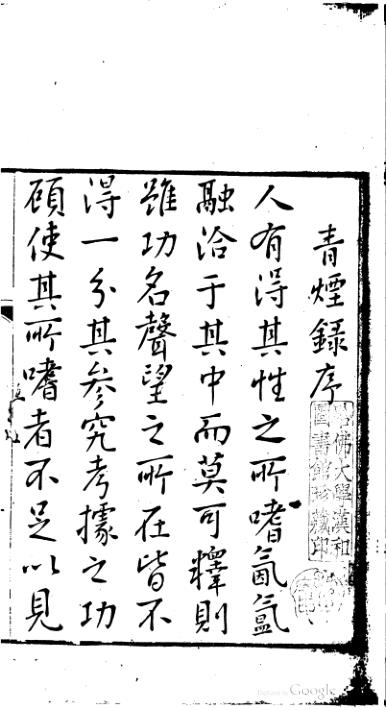 青煙錄序
人有得其性之所嗜氤氳
融洽于其中而莫可釋則
雖功名聲望之所在皆不
得一分其參究考據之功
顧使其所嗜者不足以見
哈佛大學漢和
圖書館珍藏印
Digitized by Google